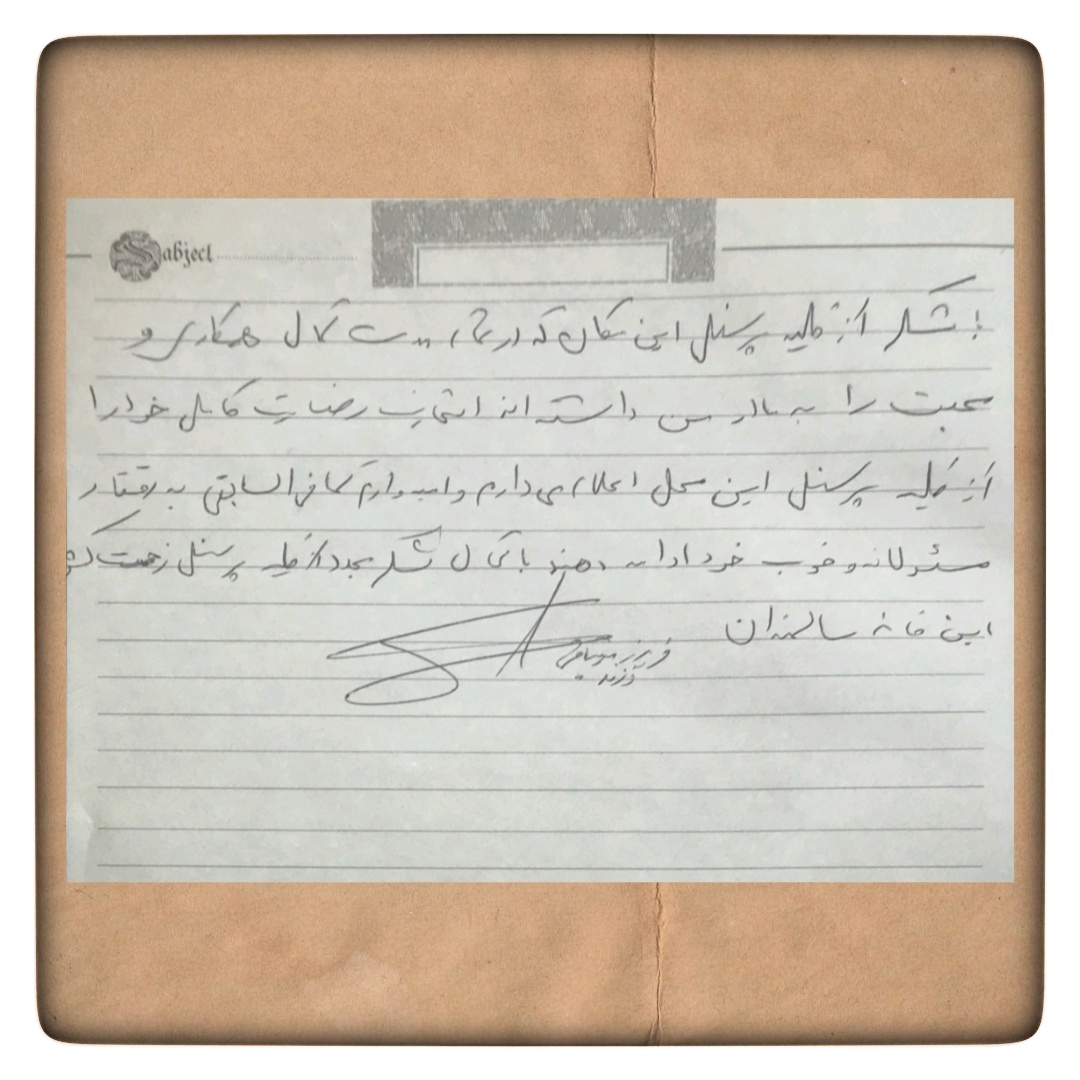 Sabject
با تشکر از کلیه پرسنل این مکان که در تمام مدت کمال همکاری و
محبت را به مادر من داشته اند اینجانب رضایت کامل خود را
از کلیه پرسنل این محل اعلام می دارم و امیدوارم کمافی السابق به رفتار
مسئولانه و خوب خود ادامه دهند با کمال تشکر مجدد از کلیه پرسنل زحمت کش
این خانه سالمندان
فرزند